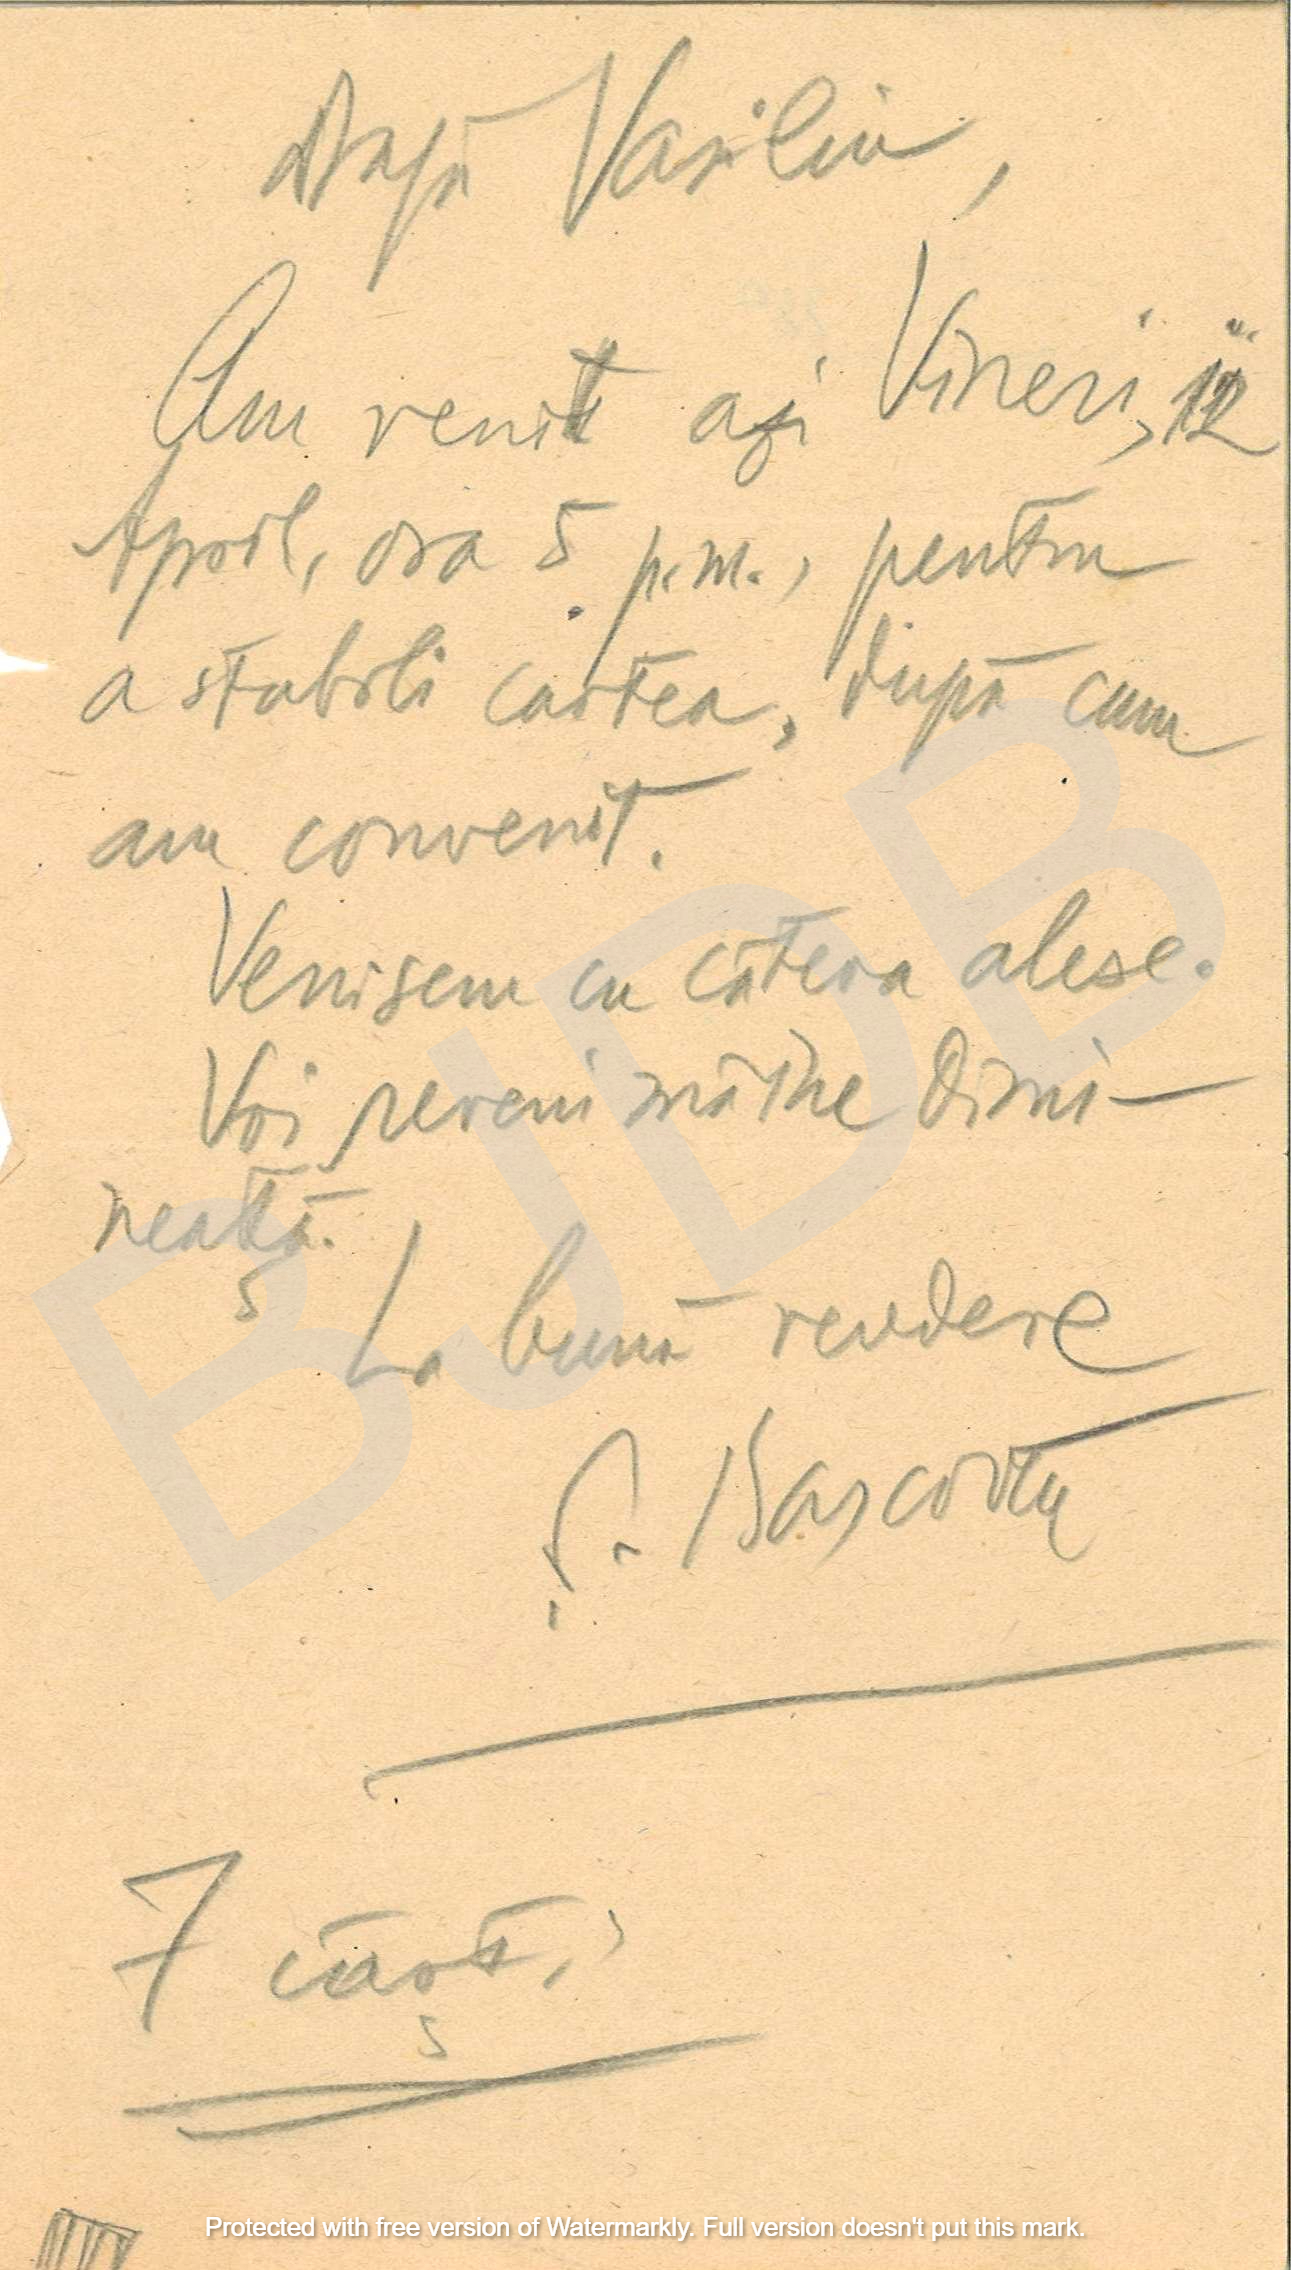 Dragă Vasiliu,
Am venit azi Vineri, 12
April, ora 5 p.m., pentru
a stabili cartea, după cum
am convenit.
Venisem cu câteva alese.
Voi reveni mâine dimi-
neață.
La bună revedere
G. Bacovia
7 cărți,
BJDB
Protected with free version of Watermarkly. Full version doesn't put this mark.